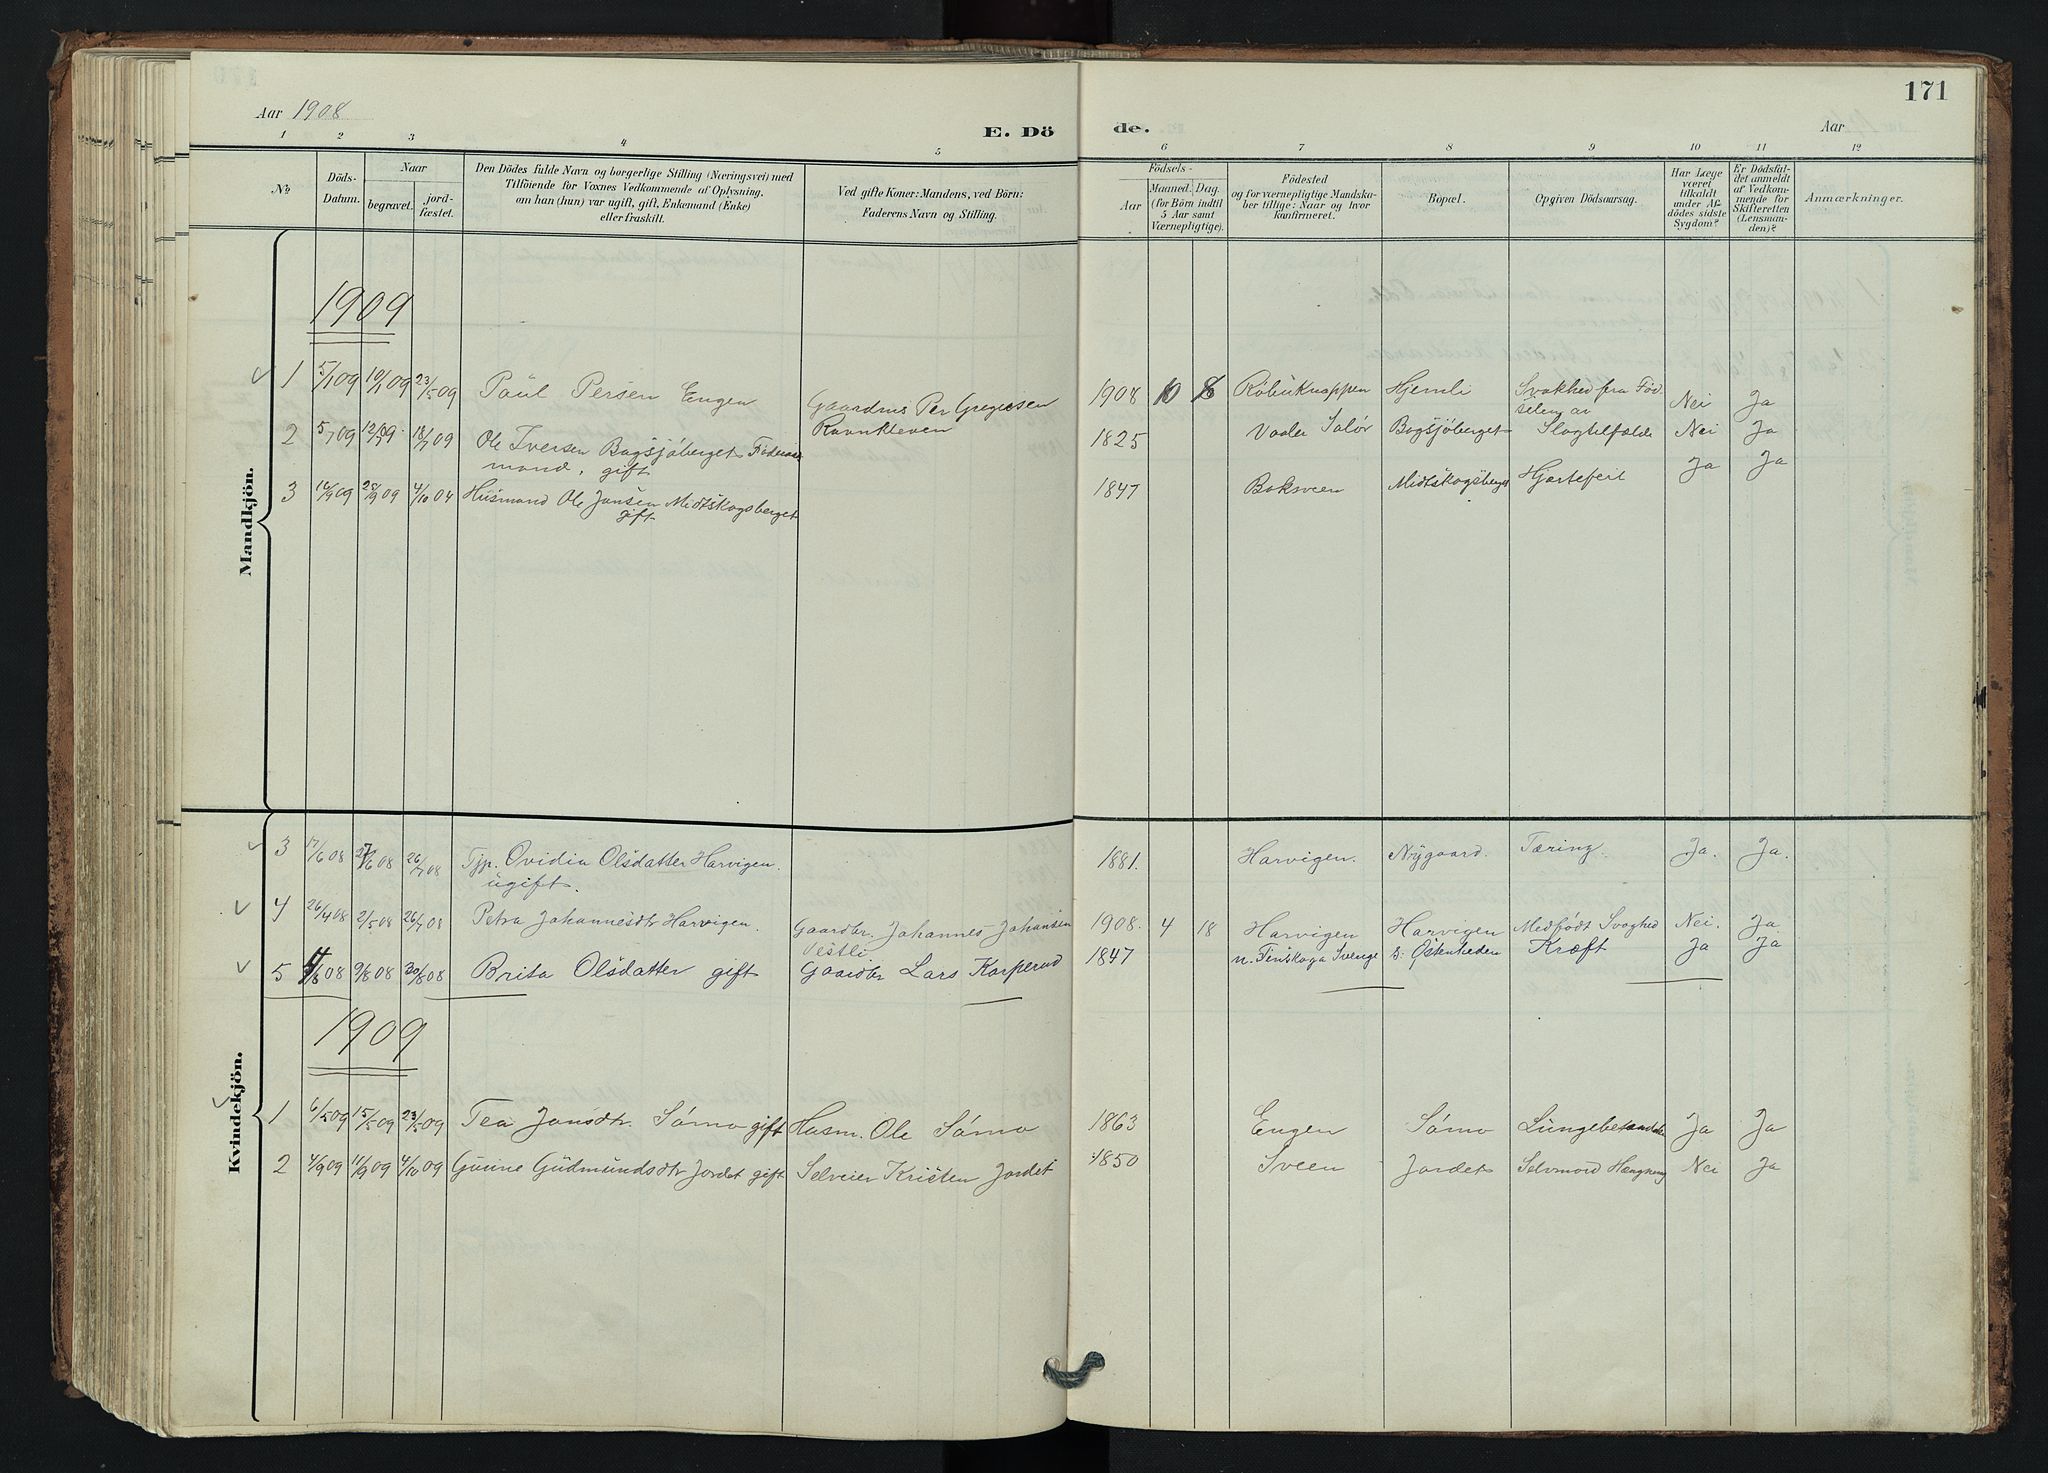 Aar 1908
E. Dö
de.
Aar
171
1 2 3 4 5 6 7 8 9 10 11 12
No
Döds-Datum.
Naar
begravet.
jord-fæstet.
Den Dödes fulde Navn og borgerlige Stilling (Næringsvei) med
Tilföiende for Voxnes Vedkommende af Oplysning,
om han (hun) var ugift, gift, Enkemand (Enke)
eller fraskilt.
Ved gifte Koner: Mandens, ved Börn:
Faderens Navn og Stilling.
Födsels-
Aar
Maaned. Dag.
(for Börn indtil
5 Aar samt
Værnepligtige).
Födested
og for værnepligtige Mandska-
ber tillige: Naar og hvor
konfirmeret.
Bopæl.
Opgiven Dödsaarsag.
Har Læge
været
tilkaldt
under Af-
dödes sidste
Sygdom?
Er Dödsfal-
det anmeldt
af Vedkom-
mende for
Skifteretten
(Lensman-
den)?
Anmærkninger.
Mandkjön.
1909
1 5/1 09 10/1 09 23/5 09 Paul Persen Engen Gaardms Per Gregersen 1908 10 Røbuknappen Hjemli Svakhed fra Fød- Nei Ja
Ravnkleven selen av
2 5/7 09 12/7 09 18/7 09 Ole Iversen Bogsjøberget Føderaads 1825 Vaaler Solør Bogsjøberget Slagtilfælde Nei Ja
mand, gift
3 16/9 09 25/9 09 4/10 04 Husmand Ole Jansen Midtskogsberget 1847 Baksveen Midtskogsberget Hjertefeil Ja Ja
gift
Kvindekjön.
3 17/6 08 27/6 08 26/7 08 Tjp. Ovidia Olsdatter Harvigen. 1881. Harvigen. Nygaard. Tæring. Ja. Ja.
ugift.
4 26/4 08 2/5 08 26/7 08 Petra Johannesdtr Harvigen. Gaardbr. Johannes Johansen 1908. 4 18 Harvigen Harvigen Medfødt Svaghed Nei. Ja
Vestli
5 08 9/8 08 30/8 08 Brita Olsdatter gift Gaardbr Lars Karperud 1847 n. Finskoga Sverige s. Østenheden Kræft Ja Ja
1909
1 6/5 09 15/5 09 23/5 09 Tea Jansdtr. Sømo gift Husm. Ole Sømo 1863 Engen Sømo Lungebetændelse Ja Ja
2 4/9 09 11/9 09 4/10 09 Gunne Gudmundsdtr Jordet gift Selveier Kristen Jordet 1850 Sveen Jordet Selvmord Hængning Nei Ja